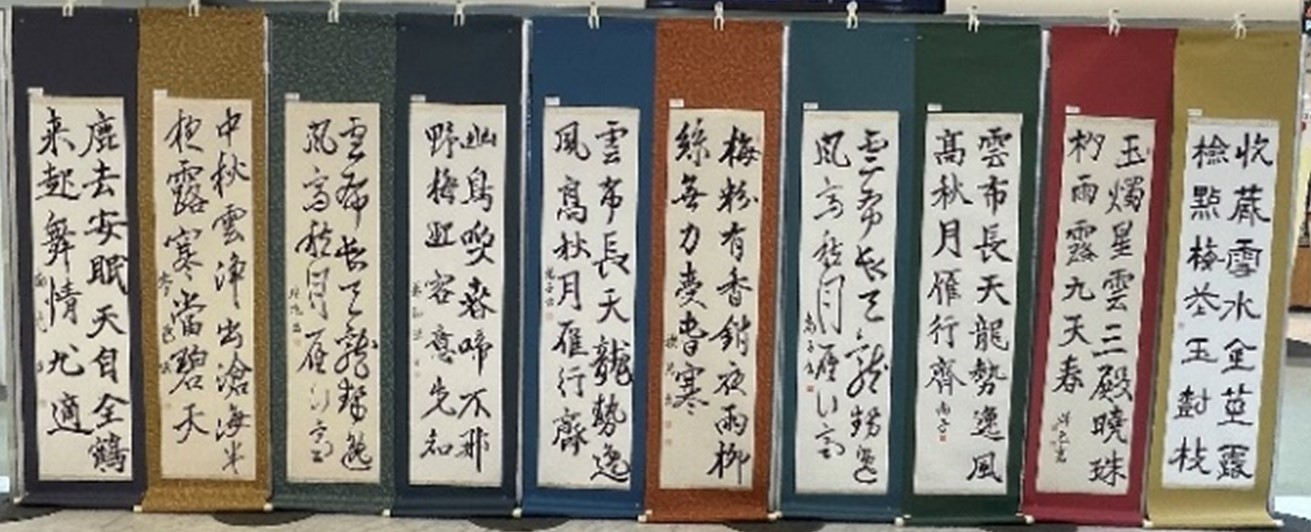 收蔵雪水金莖露
檢點梅花玉樹枝
玉燭星雲三殿曉珠
杓雨露九天春
雲布長天龍勢逸風
高秋月雁行齊
雲布長天龍勢逸
風高秋月雁行齊
梅粉有香銷夜雨柳
絲無力受春寒
雲布長天龍勢逸
風高秋月雁行齊
幽鳥喚春啼不那
野梅迎客意先知
雲布長天龍勢逸
風高秋月雁行齊
中秋雲浄出滄海半
夜露寒當碧天
鹿去安眠天自全鶴
来起舞情尤適